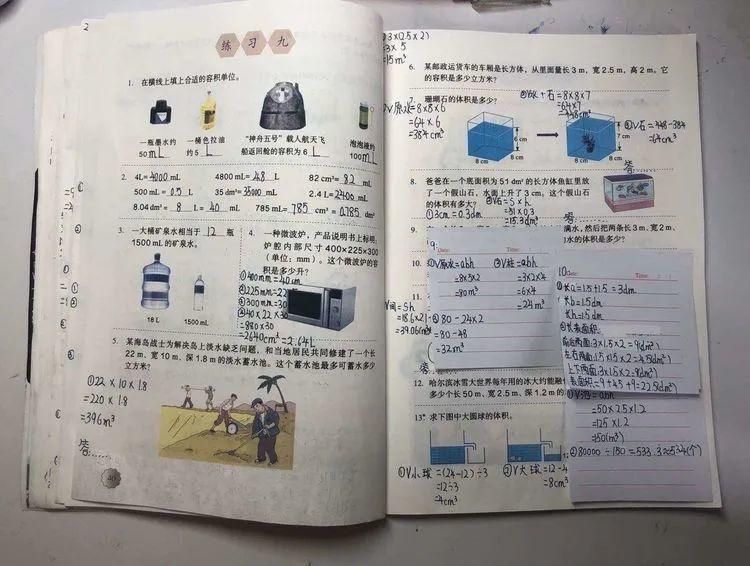 2
练习九
1. 在横线上填上合适的容积单位。
一瓶墨水约
50 mL
一桶色拉油
约 5 L
“神舟五号”载人航天飞
船返回舱的容积为 6
泡泡液约
100 mL
2. 4L= 4000 mL
4800 mL= 4.8 L
82 cm³= 82 mL
500 mL= 0.5 L
35 dm³= 35000 mL
2.4 L= 2400 mL
8.04 dm³= 8 L= 40 mL
785 mL= 785 cm³= 0.785 dm³
3. 一大桶矿泉水相当于 12 瓶
1500 mL的矿泉水。
18 L
1500 mL
4. 一种微波炉，产品说明书上标明:
炉腔内部尺寸400×225×300
(单位：mm)。这个微波炉的容
积是多少升?
①400mm=40cm
③300mm=30
④40×22
=2640cm³=2.64L
5. 某海岛战士为解决岛上淡水缺乏问题，和当地居民共同修建了一个长
22 m，宽10 m，深1.8 m的淡水蓄水池。这个蓄水池最多可蓄水多少
立方米?
①22×10×1.8
=220×1.8
=396m³
答……
3×(2.5×2)
=3×5
=15m³
6. 某邮政运货车的车厢是长方体，从里面量长3 m，宽2.5 m，高2 m。它
的容积是多少立方米?
珊瑚石的体积是多少?
V原水=8×8×6
=64×6
=384cm³
石=8×8×7
=64×7
=448cm³
V石=448-384
=64cm³
6 cm
8 cm
8 cm
7 cm
8 cm
8 cm
8. 爸爸在一个底面积为51 dm²的长方体鱼缸里放
了一个假山石，水面上升了3 cm。这个假山石
的体积有多大?
①3cm=0.3dm
=S×h
=51×0.3
=15.3dm³
答:
9.
满水，然后把两条长3 m，宽2 m，
的水的体积是多少?
9.
Date:
①V原水=abh
=8×5×2
=80m³
②V柱=abh
=3×2×4
=6×4
=24m³
③80-24×2
=80-48
=32m³
10.
Time:
Date:
①长a=1.5+1.5=3dm
长b=1.5dm
长h=1.5dm
②长表面积
前后两面:3×1.5×2=9(dm²)
左右两面:1.5×1.5×2=4.5(dm²)
上下两面:3×1.5×2=9(dm²)
表面积=9+4.5+9=22.5(dm²)
=abh
=50×2.5×1.2
=125×1.2
=150(m³)
②80000÷150=533.3≈534(个)
10.
11.
=Sh
=39.06m³
12. 哈尔滨冰雪大世界每年用的冰大约能融化
多少个长50 m，宽2.5 m，深1.2 m的
13. 求下图中大圆球的体积。
①V小球=(24-12)÷3
=12÷3
=4cm³
②V大球=12-4
=8cm³